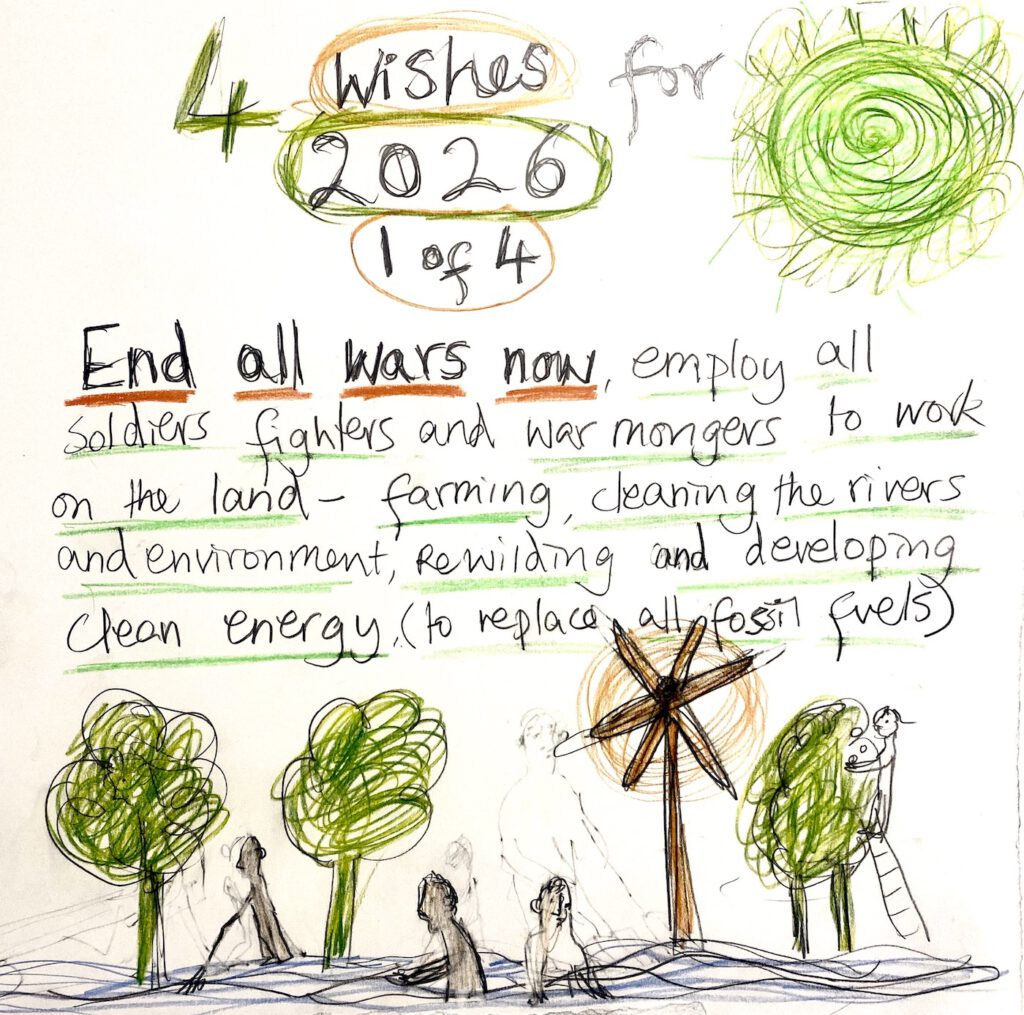 4 wishes for
2026
1 of 4
End all wars now, employ all
soldiers fighters and war mongers to work
on the land – farming, cleaning the rivers
and environment, Rewilding and developing
clean energy, (to replace all fossil fuels)